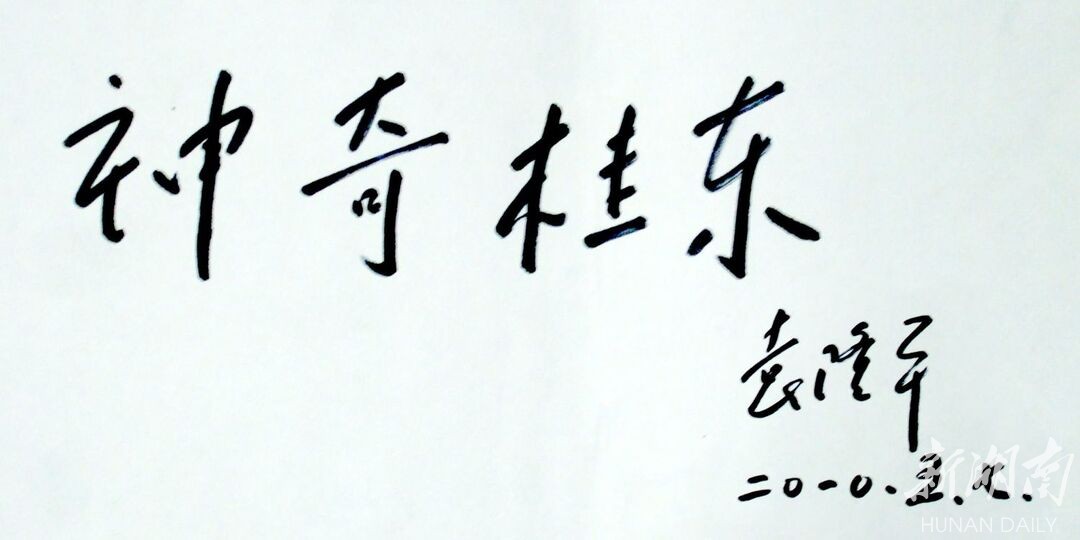 神奇桂东
袁隆平
二〇一〇.五.
新湖南
HUNAN DAILY